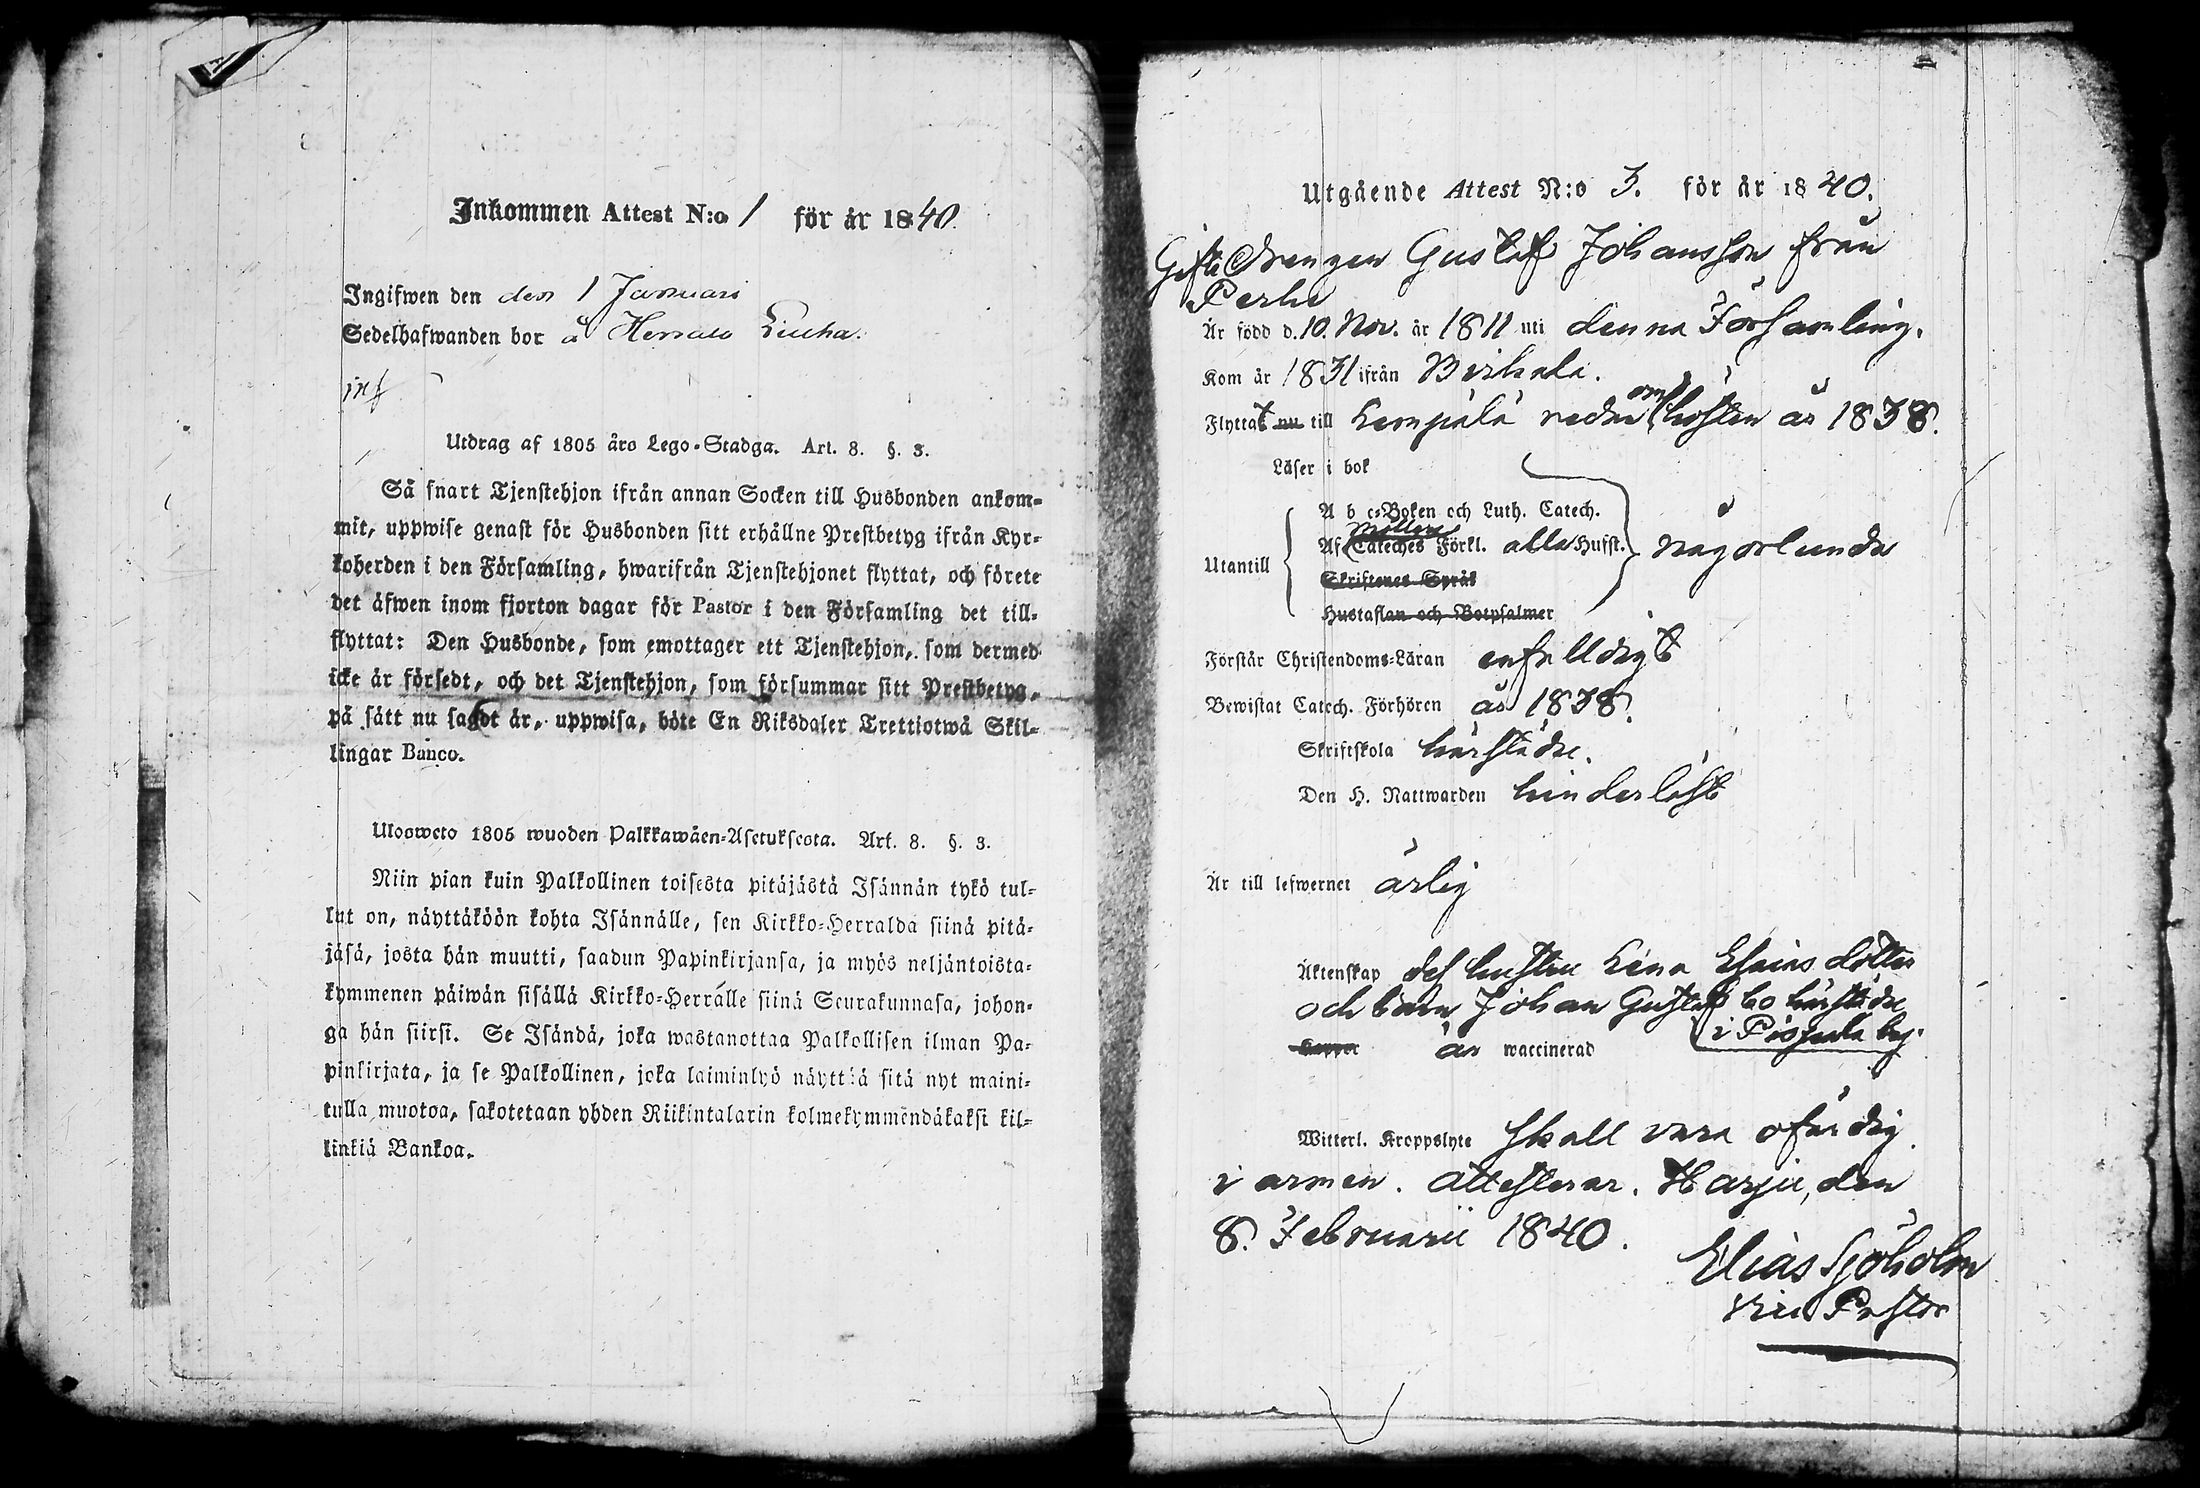 Inkommen Attest N:o 1 för år 1840.
Ingifwen den den 1 Januari
Sedelhafwanden bor å Herrala
inf
Utdrag af 1805 års Lego-Stadga. Art. 8. §. 3.
Så snart Tjenstehjon ifrån annan Socken till Husbonden ankom-
mit, uppwise genast för Husbonden sitt erhållne Prestbetyg ifrån Kyr-
koherden i den Församling, hwarifrån Tjenstehjonet flyttat, och förete
det äfwen inom fjorton dagar för Pastor i den Församling det till-
flyttat: Den Husbonde, som emottager ett Tjenstehjon, som dermed
icke är försedt, och det Tjenstehjon, som försummar sitt Prestbetyg,
på sätt nu sagdt är, uppwisa, böte En Riksdaler Trettiotwå Skil-
lingar Banco.
Ulosweto 1805 wuoden Palkkawäen-Asetuksesta. Art. 8. §. 3.
Niin pian kuin Palkollinen toisesta pitäjästä Isännän tykö tul-
lut on, näyttäköön kohta Isännälle, sen Kirkko-Herralda siinä pitä-
jäsä, josta hän muutti, saadun Papinkirjansa, ja myös neljäntoista-
kymmenen päiwän sisällä Kirkko-Herralle siinä Seurakunnasa, johon-
ga hän siirsi. Se Isändä, joka wastanottaa Palkollisen ilman Pa-
pinkirjata, ja se Palkollinen, joka laiminlyö näyttää sitä nyt maini-
tulla muotoa, sakotetaan yhden Riikintalarin kolmekymmendäkaksi kil-
linkiä Bankoa.
Utgående Attest N:o 3. för år 1840.
Gifte Drengen Gustaf Johansson från
Är född d. 10. Nov. år 1811 uti denna Församling.
Kom år 1831 ifrån Birkala.
Flyttat nu till Lempälä redan om hösten år 1838.
Läser i bok
A b c-Boken och Luth. Catech.
Möllers
Utantill Af Cateches Förkl. alla Hufst. någorlunda
Skriftenes Språk
Hustaflan och Botpsalmer
Förstår Christendoms-Läran enfaldigt
Bewistat Catech. Förhören år 1838.
Skriftskola härstädes.
Den H. Nattwarden hinderlöst
Är till lefwernet ärlig
Äktenskap dess hustru Lena Esaias dotter
och barn Johan Gustaf bo härstädes
i Pispala by.
Koppor är waccinerad
Witterl. Kroppslyte skall vara ofärdig
i armen. attesterar. Harju, den
8. Februarii 1840.
Elias Sjöholm
Vice Pastor